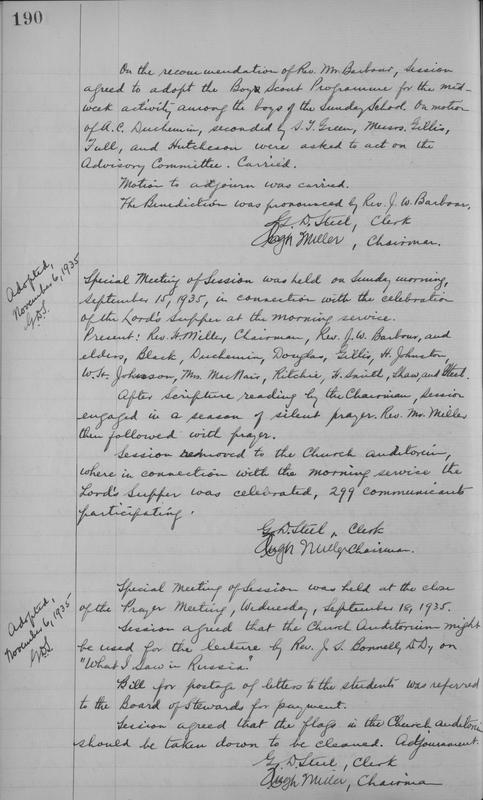 190
On the recommendation of Rev. Mr. Barbour, Session
agreed to adopt the Boys Scout Programme for the mid-
week activity among the boys of the Sunday School. On motion
of A.C. Duchemin, seconded by S.T. Green, Messrs. Gillis,
Tull, and Hutcheson were asked to act on the
Advisory Committee. Carried.
Motion to adjourn was carried.
The Benediction was pronounced by Rev. J. W. Barbour.
G. D. Steel, Clerk
Hugh Miller, Chairman.
Adopted,
November 6, 1935
G.D.S.
Special Meeting of Session was held on Sunday morning,
September 15, 1935, in connection with the celebration
of the Lord's Supper at the morning service.
Present: Rev. H. Miller, Chairman, Rev. J. W. Barbour, and
elders, Black, Duchemin, Douglas, Gillis, H. Johnston,
W. H. Johnson, Mrs. MacNair, Ritchie, H. Smith, Shaw, and Steel.
After Scripture reading by the Chairman, Session
engaged in a season of silent prayer. Rev. Mr. Miller
then followed with prayer.
Session removed to the Church Auditorium,
where in connection with the morning service the
Lord's Supper was celebrated, 299 communicants
participating.
G. D. Steel, Clerk
Hugh Miller, Chairman.
Adopted,
November 6, 1935
G.D.S.
Special Meeting of Session was held at the close
of the Prayer Meeting, Wednesday, September 18, 1935.
Session agreed that the Church Auditorium might
be used for the lecture by Rev. J. S. Bonnell, D.D., on
"What I Saw in Russia."
Bill for postage of letters to the students was referred
to the Board of Stewards for payment.
Session agreed that the flags in the Church Auditorium
should be taken down to be cleaned. Adjournment.
G. D. Steel, Clerk
Hugh Miller, Chairman